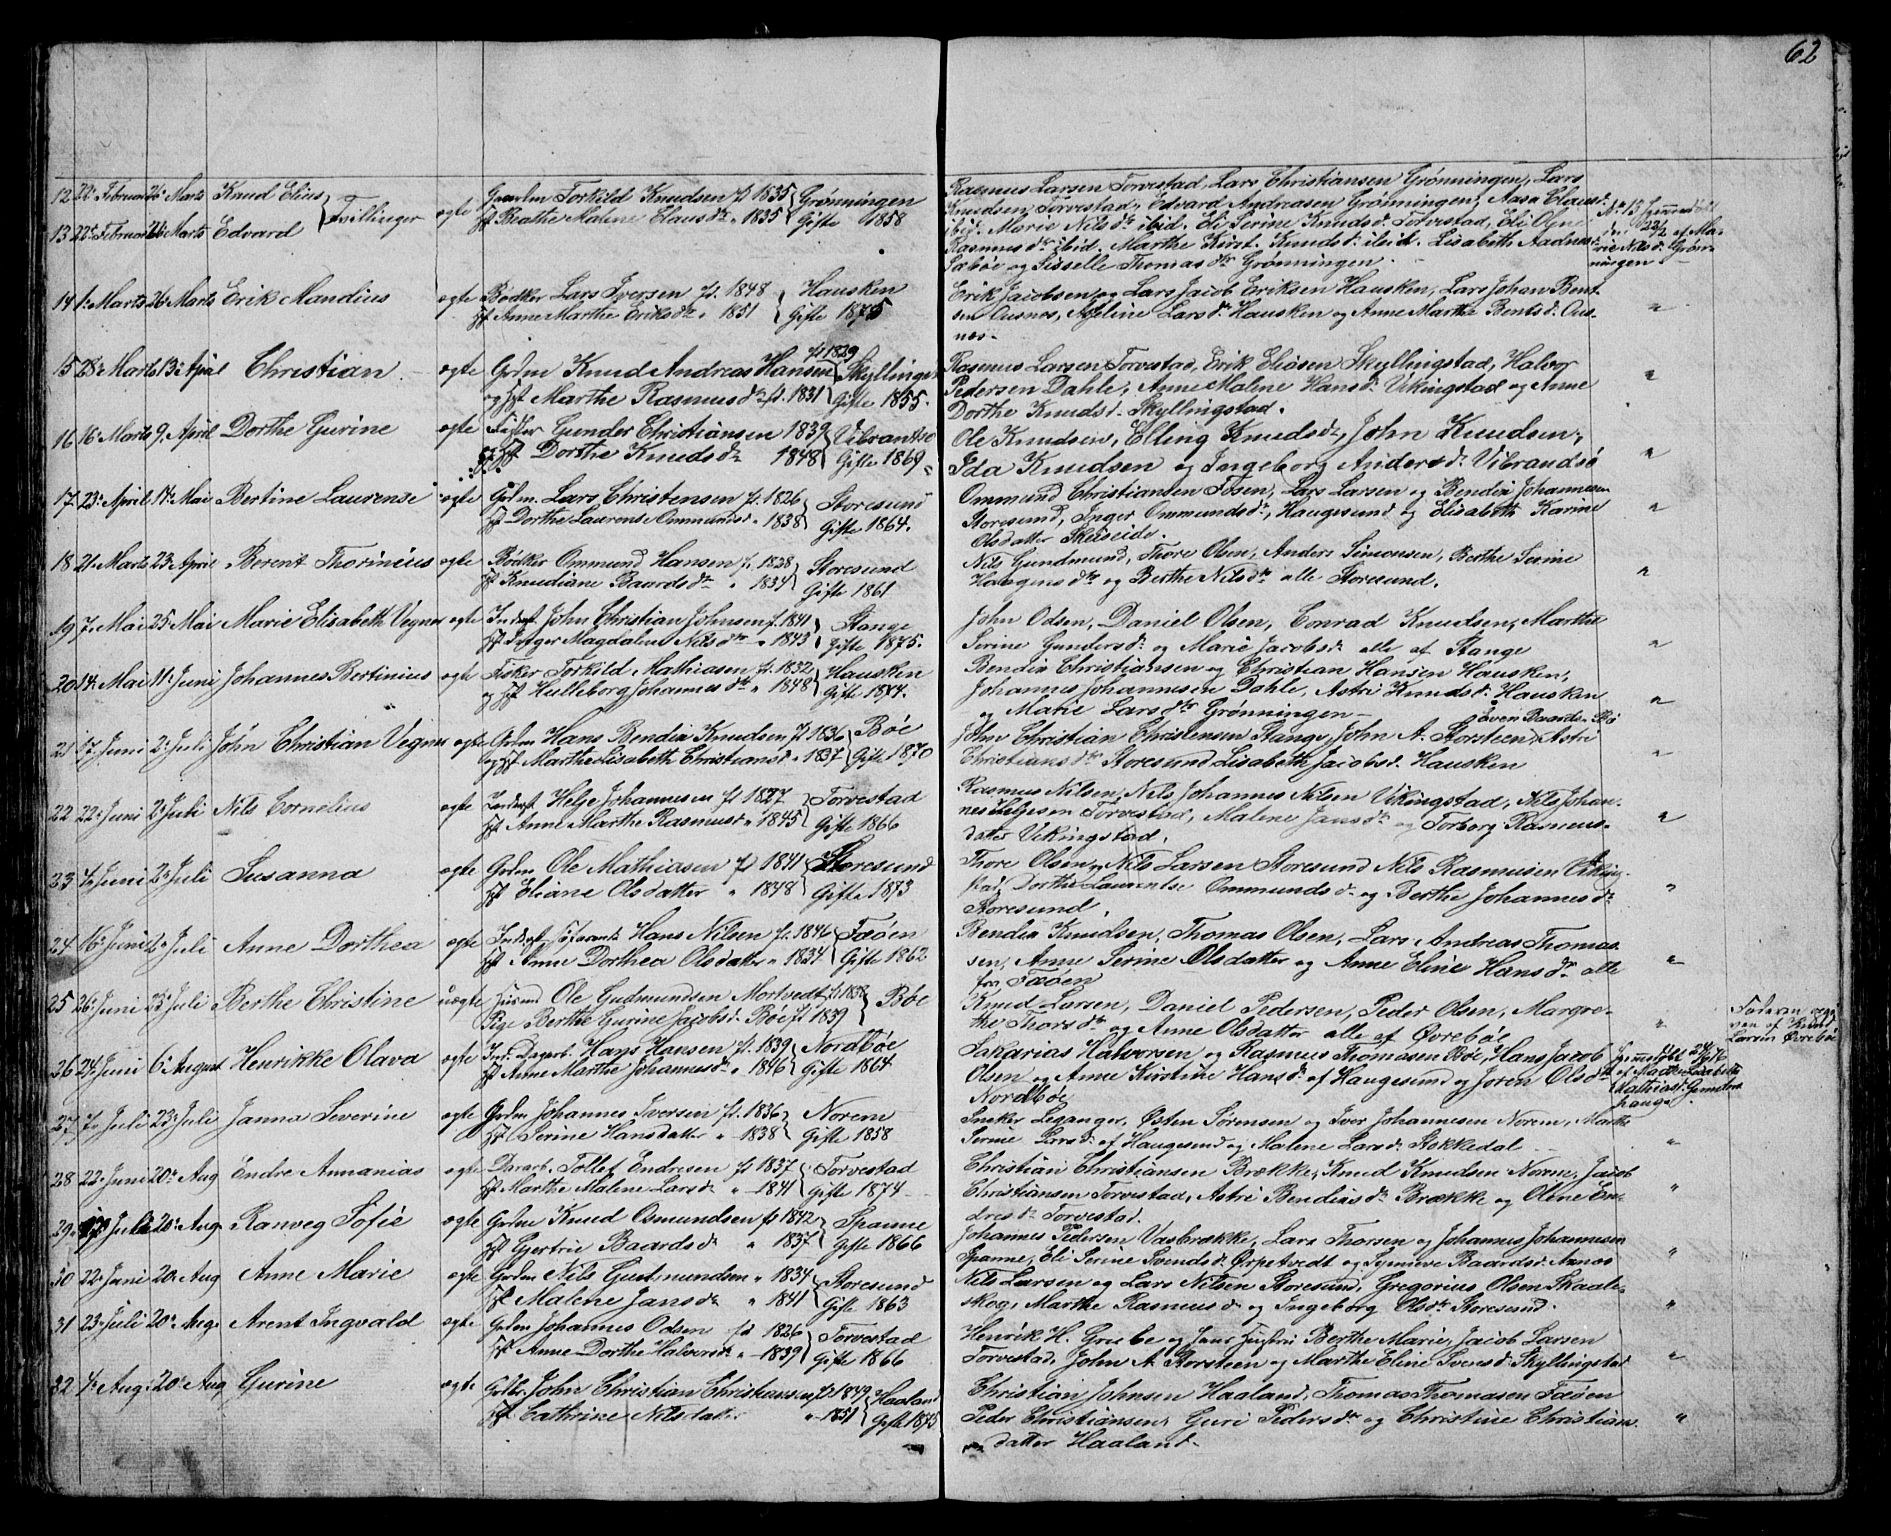 62
12 22de Februar 26de Marts Knud Elius } Tvillinger ægte Gaardm Torkild Knudsen f. 1835 } Grønningen
13 22de Februar 26de Marts Edvard Hst Malene Clausdtr " 1835 } Gifte 1858
Rasmus Larsen Torvestad, Lars Christiansen Grønningen, Lars
Knudsen Torvestad, Edvard Andreasen Grønningen, Aasa Clausd.
ibid. Marie Nilsdtr ibid. Eli Serine Knudsd. Torvestad, Eli Olyn
Rasmusdtr ibid. Marthe Kirst. Knudsd. ibid. Lisabeth Aadnes
Sæbøe og Sisselle Thomasdtr Grønningen.
No 13 hjemmedøbt
den 22/2 af Ma-
rie Nilsd. Grøn-
ningen
14 1de Marts 26de Marts Erik Mandius ægte Bødker Lars Iversen f. 1848 } Hausken
Hst Anne Marthe Eriksdtr " 1851 } Gifte 1875
Erik Jacobsen og Lars Jacob Eriksen Hausken, Lars Johan Bent-
sen Ausnes, Aseline Larsdtr Hausken og Anne Marthe Bentsd. Aus-
nes. "
15 28de Marts 13de April Christian ægte Grdm Knud Andreas Hansen f. 1829 } Skyllingst
og Hst Marthe Rasmusdtr f. 1831 } Gifte 1855.
Rasmus Larsen Torvestad, Erik Eliasen Skyllingstad, Halvor
Pedersen Dahle, Anne Malene Hansd. Vikingstad og Anne
Dorthe Knudsd. Skyllingstad. "
16 16de Marts 9de April Dorthe Gurine ægte Fisker Gunder Christiansen 1839 } Vibrantsø
Hst Dorthe Knudsdtr 1848 } Gifte 1869
Ole Knudsen, Elling Knudsdtr, John Knudsen,
Ida Knudsen og Ingeborg Andersd. Vibrandsø "
17 23de April 17de Mai Bertine Laurense ægte Grdm. Lars Christensen f. 1826 } Storesund
Hst Dorthe Laurense Ommundsd " 1838 } Gifte 1864.
Ommund Christiansen Fosen, Lars Larsen og Bendix Johannesen
Storesund, Inger Ommundsdtr, Haugesund og Elisabeth Karine
Olsdatter Skeiseide. "
18 21de Marts 23de April Berent Thorinius ægte Bødker Ommund Hansen f. 1828 } Storesund
Hst Knudiane Baardsdtr " 1834 } Gifte 1861
Nils Gundmund, Thore Olsen, Anders Simonsen, Berthe Serine
Haagensdtr og Berthe Nilsdtr alle Storesund. "
19 7de Mai 25de Mai Marie Elisabeth Vegner ægte Inderst John Christian Johnsen f. 1841 } Stange
Hst Inger Magdalene Nilsdtr " 1843 } Gifte 1875.
John Odsen, Daniel Olsen, Conrad Knudsen, Marthe
Serine Gundersd. og Marie Jacobsd. alle af Stange "
20 14de Mai 11de Juni Johannes Bertinius ægte Fisker Torkild Mathiasen f. 1832 } Hausken
og Hst Hulleborg Johannesdtr " 1848 } Gifte 1874.
Bendix Christiansen og Christian Hansen Hausken,
Johannes Johannesen Dahle, Astri Knudsd. Hausken
og Matie Larsdtr Grønningen "
21 17de Juni 2de Juli John Christian Vegner ægte Grdm Hans Bendix Knudsen f. 1836 } Bøe
og Hst Marthe Lisabeth Christiansd " 1837 } Gifte 1870
Sven Baards. Bø
John Christian Christensen Stange, John A. Storsteen, Astri
Christiansdtr Storesund Lisabeth Jacobsd. Hausken "
22 22de Juni 2de Juli Nils Cornelius ægte Inderst Helje Johannesen f. 1827 } Torvestad
Hst Anne Marthe Rasmusd " 1845 } Gifte 1866
Rasmus Nilsen, Nils Johannes Nilsen Vikingstad, Nils Johan-
nes Heljesen Torvestad, Malene Jansdtr og Torborg Rasmus-
datter Vikingstad. "
23 4de Juni 2de Juli Susanna ægte Grdm Ole Mathiasen f. 1841 } Storesund
Hst Eliane Olsdatter " 1848 } Gifte 1873
Thore Olsen, Nils Larsen Storesund Nils Rasmusen Viking-
stad, Dorthe Laurentse Ommundsd. og Berthe Johannesdtr
Storesund. "
24 16de Juni 2de Juli Anne Dorthea ægte Inderst Hans Nilsen f. 1846 } Feøen
Hst Anne Dorthea Olsdatter " 1834 } Gifte 1862
Bendix Knudsen, Thomas Olsen, Lars Andreas Thomas-
sen, Anne Serine Olsdatter og Anne Eline Hansdtr alle
fra Feøen "
25 26de Juni 23de Juli Berthe Christine uægte Ole Gudmundsen Mortvedt f. 1838 } Bøe
Pige Berthe Gurine Jacobsd. Bøe f. 1839
Knud Larsen, Daniel Pedersen, Peder Olsen, Margre-
the Thorsdtr og Anne Olsdatter alle af Øvrebøe "
Faderen opgi-
ven af Knud
Larsen Øvrebøe
26 24de Juni 6te August Henrikke Olava ægte Ind. Dagarb. Hans Hansen f. 1839 } Nordbøe
Hst Anne Marthe Johannesdtr " 1846 } Gifte 1864
Sakarias Halvorsen og Rasmus Thomasen Bøe, Hans Jacob
Olsen og Anne Kirstine Hansd. af Haugesund og Joren Olsdtr
Nordbøe
Hjemmedøbt 24/6 76
af Madm Lisabeth
Mathiasd. Gunders-
hauge
27 7de Juli 23de Juli Janna Severine ægte Grdm Johannes Iversen f. 1836 } Norem
Hst Serine Hansdatter " 1838 } Gifte 1858
Sneker Leganger, Østen Sørensen og Iver Johannesen Norem, Marthe
Serine Larsd. af Haugesund og Malene Larsd. Stokkedal "
28 22de Juni 20de Aug Endre Annanias ægte Dararb. Tollef Endresen f. 1837 } Torvestad
Hst Marthe Malene Larsdtr " 1841 } Gifte 1874
Christian Christiansen Brække, Knud Knudsen Norem, Jacob
Christiansen Torvestad, Astri Bendixsdtr Brække og Oline En-
dresdtr Torvestad. "
29 Juli 20de Aug Ranveg Sofie ægte Grdm Knud Osmundsen f. 1842 } Spanne
Hst Gjertrie Baardsdtr " 1837 } Gifte 1866
Johannes Pedersen Vasbrække, Lars Thorsen og Johannes Johannesen
Spanne, Eli Serine Svendsd. Ørpetvedt og Synnive Baardsd. Aunøs "
30 22de Juni 20de Aug Anne Marie ægte Grdm Nils Gudmundsen " 1834 } Storesund
Hst Malene Jansdtr " 1841 } Gifte 1863
Nils Larsen og Lars Nilsen Storesund, Gregorius Olsen Skaale-
skog, Marthe Rasmusd. og Ingeborg Olsdtr Storesund. "
31 23de Juli 20de Aug. Arent Ingvald ægte Grdm Johannes Odsen f. 1826 } Torvestad
Hst Anne Dorthe Halvorsdtr " 1839 } Gifte 1866
Henrik H. Griebe og hans Hustru Berthe Marie, Jacob Larsen
Torvestad, John A. Storsteen og Marthe Eline Svensd. Skyllingstad "
32 4de Aug. 20de Aug Gurine ægte Grdbr. John Christian Christiansen f. 1849 } Haaland
Hst Cathrine Nilsdatter " 1851 } Gifte 1875
Christian Johnsen Haaland, Thomas Thomasen Feøen
Peder Christiansen, Guri Pedersdtr og Christine Christians-
datter Haaland. "